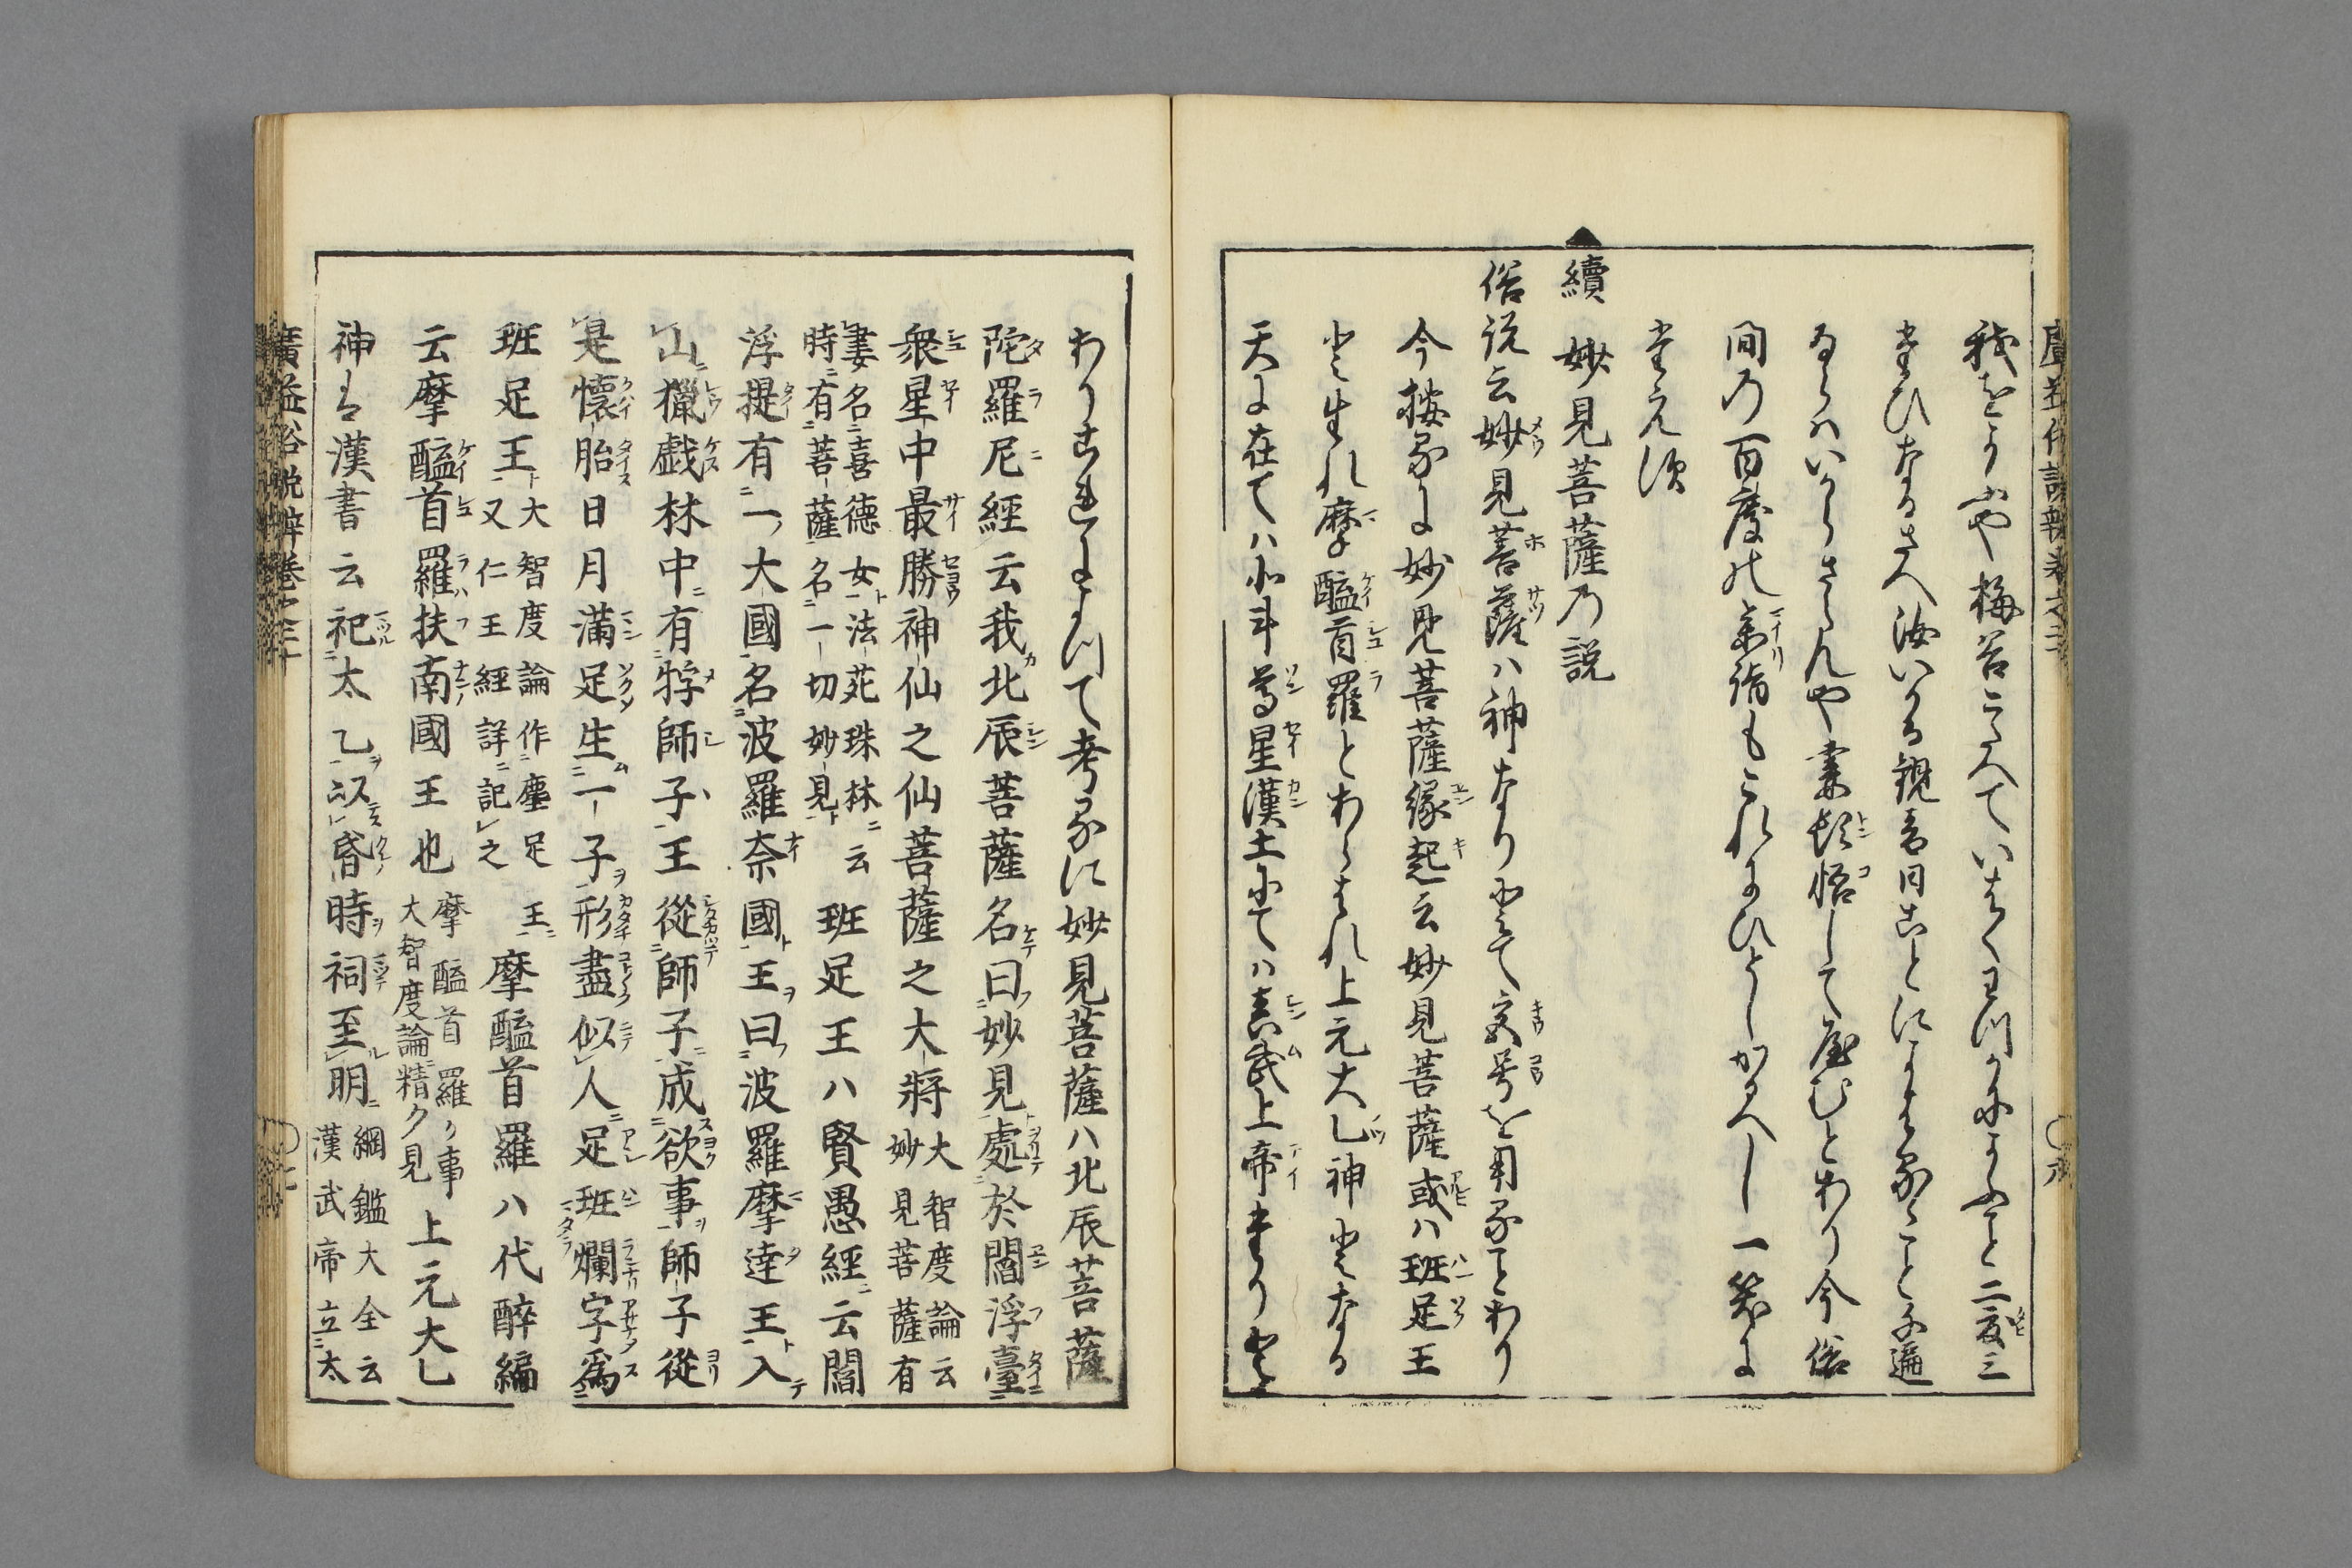 我をとふや梅答こたへていはくまつかにとふと二度三
まひなるさへ汝いかる観音日ことによはることく千遍
ならはいからさらんや妻頓悟して座むとあり今俗
間の百度の参詣もこれにひとしかるへし一笑に
堪えす
續 妙見菩薩乃説
俗説云妙見菩薩ハ神なりとて交号を用ることあり
今按るに妙見菩薩縁起云妙見菩薩或ハ班足王
と生れ摩醯首羅とあらはれ上元大乙神となる
天に在てハ北斗尊星漢土にてハ真武上帝
あり是によつて考るに妙見菩薩ハ北辰菩薩
陀羅尼經云我北辰菩薩名曰妙見處於閻浮臺
衆星中最勝神仙之仙菩薩之大將 大智度論云 妙見菩薩有
妻名喜德女法苑珠林云 時有菩薩名一切妙見 班足王ハ賢愚經云閻
浮提有一大國名波羅奈國王曰波羅摩達王入
山獵戲林中有牸師子王從師子成欲事師子從
是懷胎日月滿足生一子形盡似人足班爛字爲
班足王 大智度論作塵足王 又仁王經詳記之 摩醯首羅ハ代醉編
云摩醯首羅扶南國王也 摩醯首羅ノ事 大智度論精ク見 上元大乙
神ハ漢書云祀太乙以昏時祠至明 綱鑑大全云 漢武帝立太
廣益俗説辨卷之三十